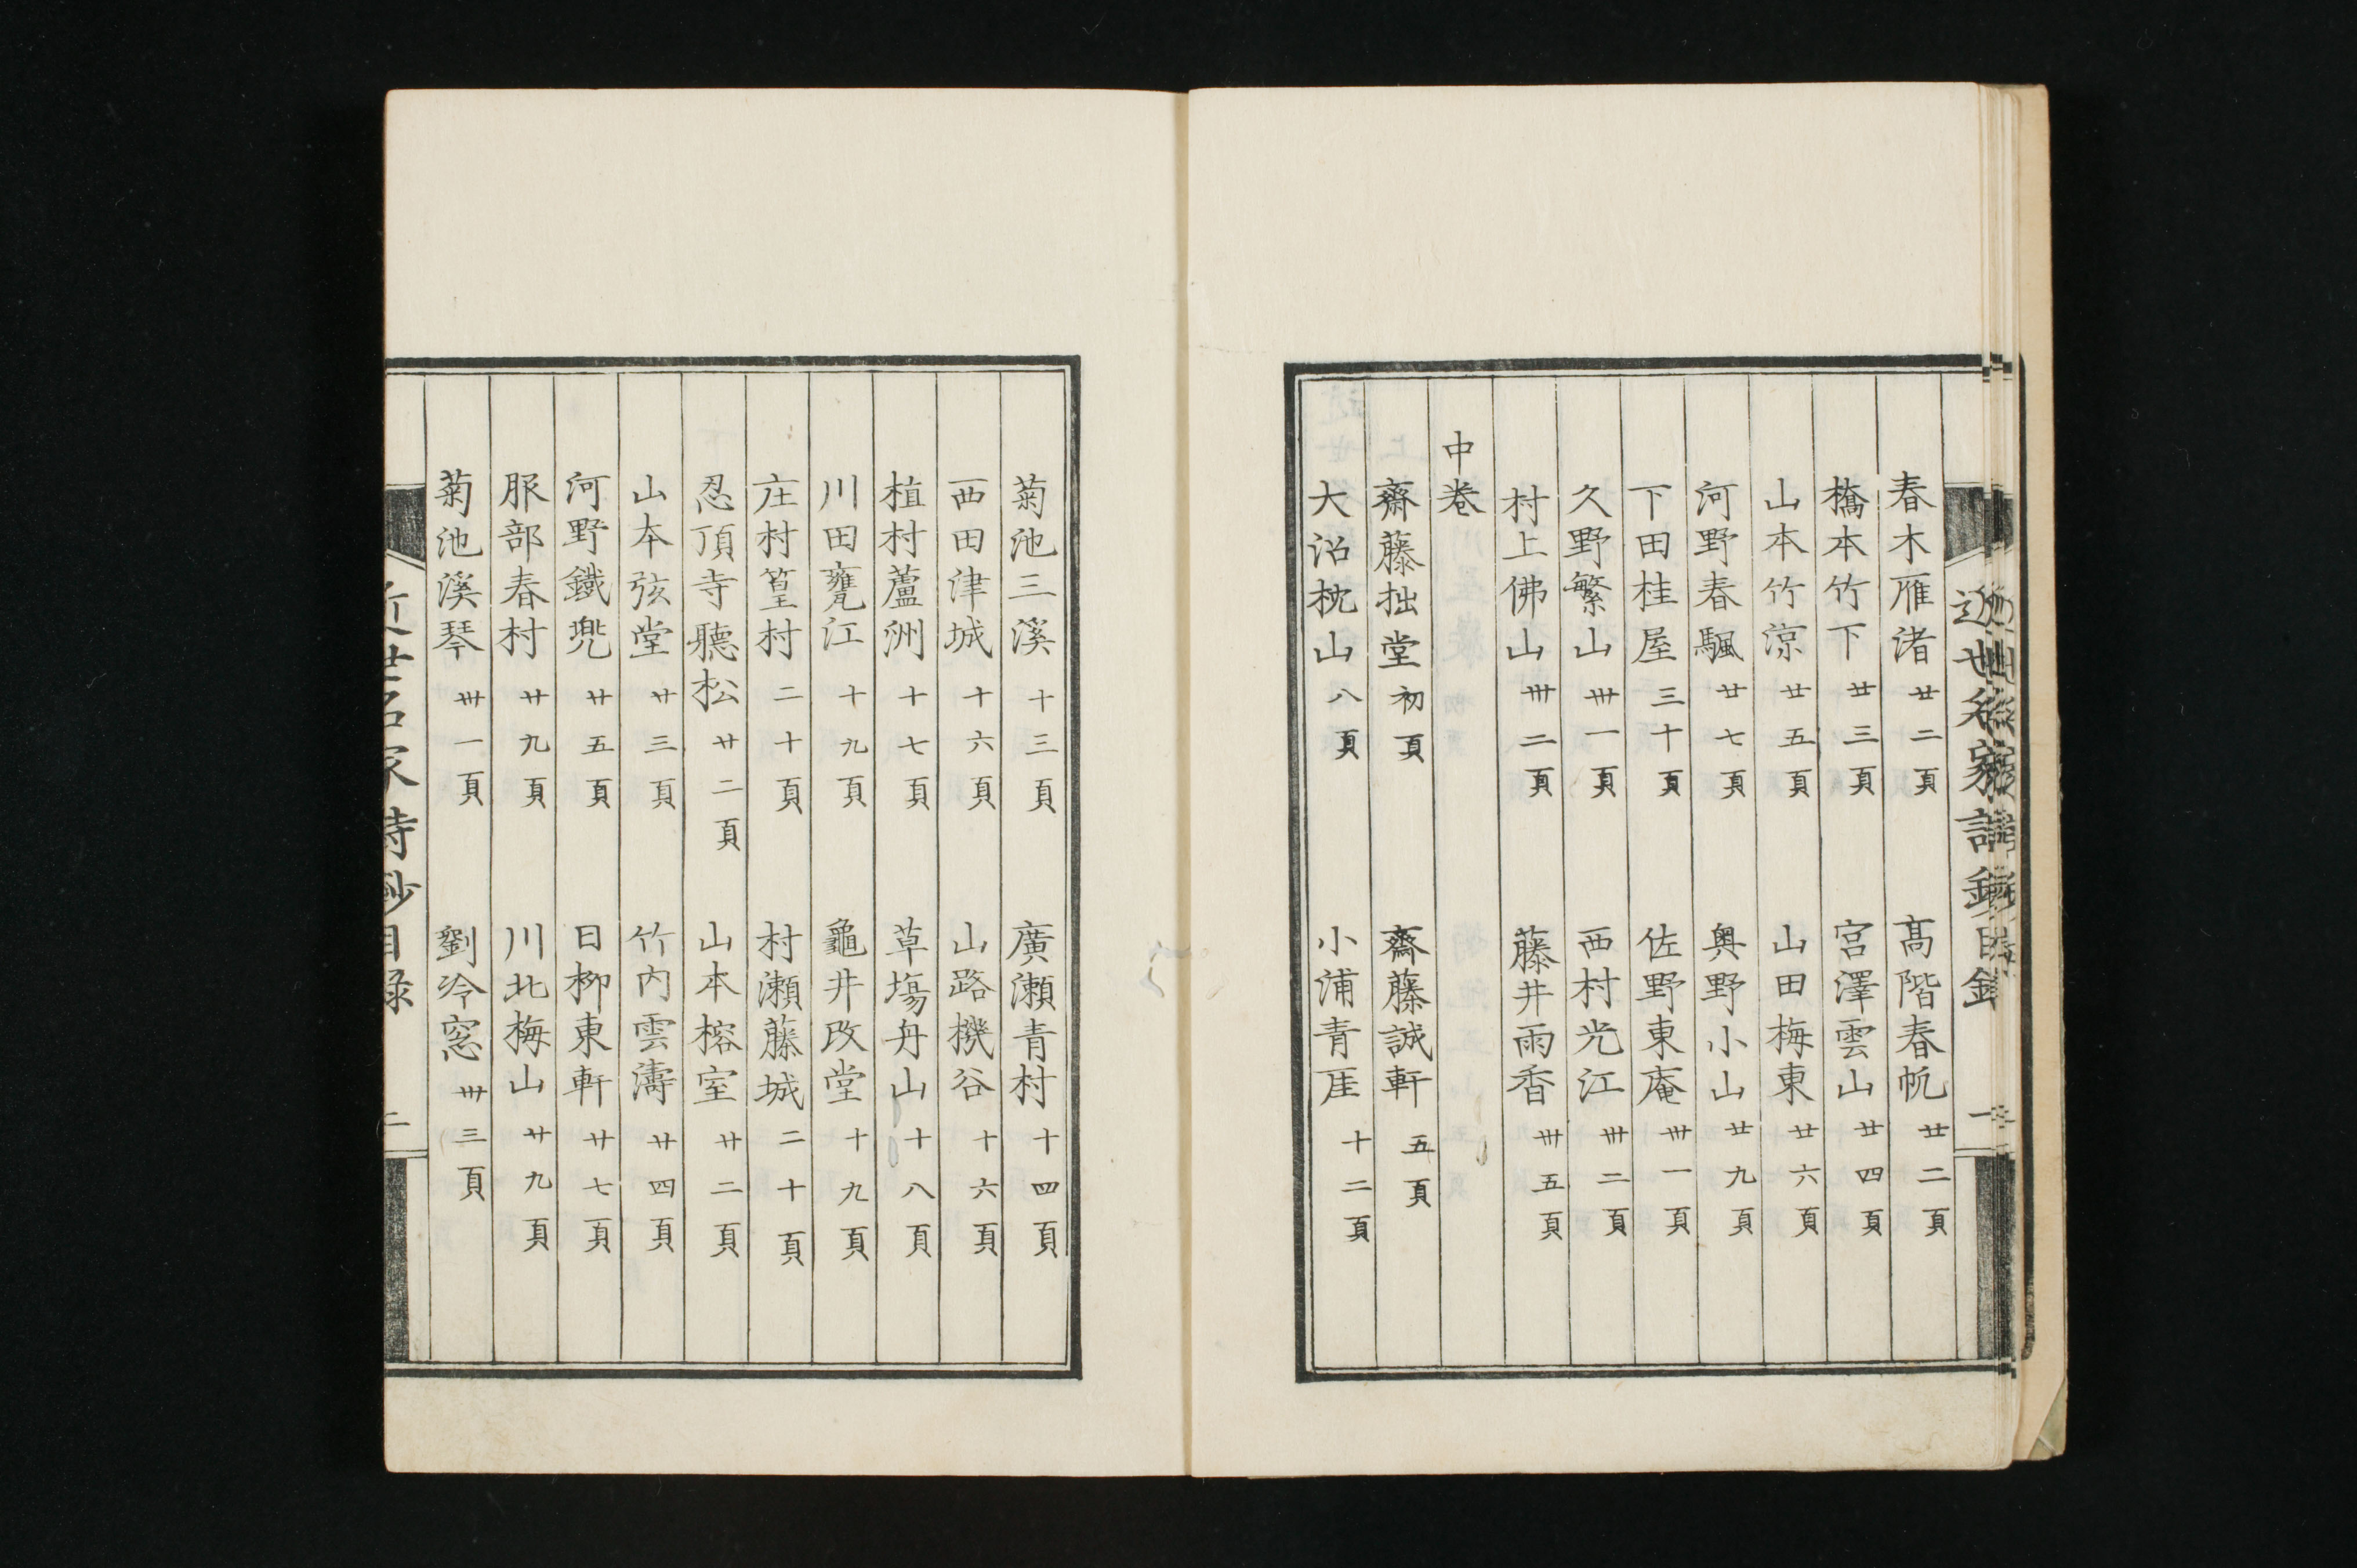 春木雁渚 廿二頁 髙階春帆 廿二頁
橋本竹下 廿三頁 宮澤雲山 廿四頁
山本竹凉 廿五頁 山田梅東 廿六頁
河野春颿 廿七頁 奥野小山 廿九頁
下田桂屋 三十頁 佐野東庵 卅一頁
久野繁山 卅一頁 西村光江 卅二頁
村上佛山 卅二頁 藤井雨香 卅五頁
中卷
齋藤拙堂 初頁 齋藤誠軒 五頁
大沼枕山 八頁 小浦青厓 十二頁
菊池三溪 十三頁 廣瀬青村 十四頁
西田津城 十六頁 山路機谷 十六頁
植村蘆洲 十七頁 草塲舟山 十八頁
川田甕江 十九頁 龜井改堂 十九頁
庄村篁村 二十頁 村瀬藤城 二十頁
忍頂寺聽松 廿二頁 山本榕室 廿二頁
山本弦堂 廿三頁 竹内雲濤 廿四頁
河野鐵兜 廿五頁 日柳東軒 廿七頁
服部春村 廿九頁 川北梅山 廿九頁
菊池溪琴 卅一頁 劉冷窓 卅三頁
近世名家詩鈔目録 二